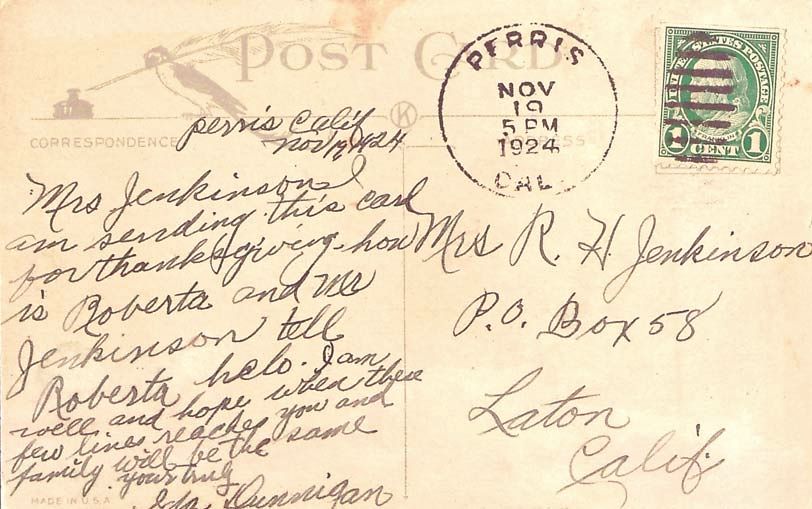 POST CARD
CORRESPONDENCE
PERRIS
NOV
19
5 PM
1924
CAL.
UNITED STATES POSTAGE
FRANKLIN
1 CENT 1
perris Calif
nov 19, 1924
Mrs Jenkinson I
am sending this card
for thanksgiving. how
is Roberta and Mr
Jenkinson tell
Roberta helo. I am
well and hope when these
few lines reaches you and
family will be the same
yours truly
Dunnigan
MADE IN U.S.A
Mrs R. H. Jenkinson
P.O. Box 58
Laton
Calif.